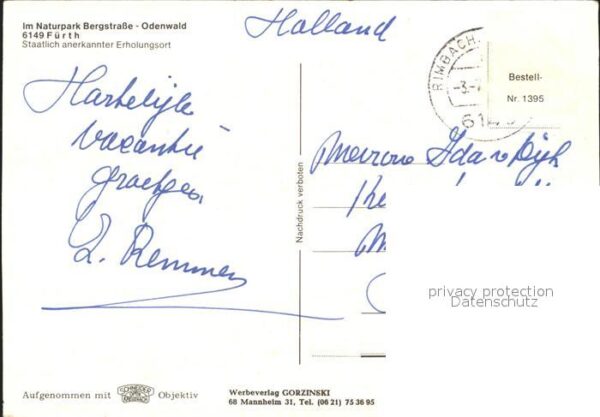 Im Naturpark Bergstraße - Odenwald
6149 Fürth
Staatlich anerkannter Erholungsort
Holland
RIMBACH
-3-
Bestell-
Nr. 1395
Hartelijke
vacantie
groetjes
Nachdruck verboten
Mevrouw Ida v Dijk
privacy protection
Datenschutz
Aufgenommen mit
SCHNEIDER
KREUZNACH
Objektiv
Werbeverlag GORZINSKI
68 Mannheim 31, Tel. (06 21) 75 36 95